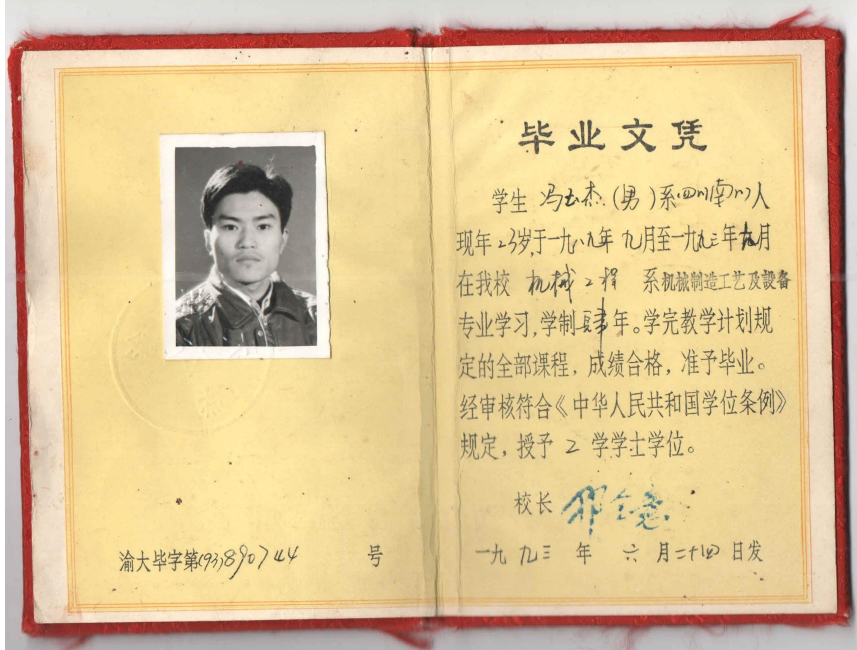 渝大毕字第(93)890744号
毕业文凭
学生 冯玉杰(男)系四川南川人
现年23岁,于一九八九年九月至一九九三年九月
在我校 机械工程 系机械制造工艺及设备
专业学习,学制肆年。学完教学计划规
定的全部课程,成绩合格,准予毕业。
经审核符合《中华人民共和国学位条例》
规定,授予 工学学士学位。
校长
一九九三年 六月二十四日发